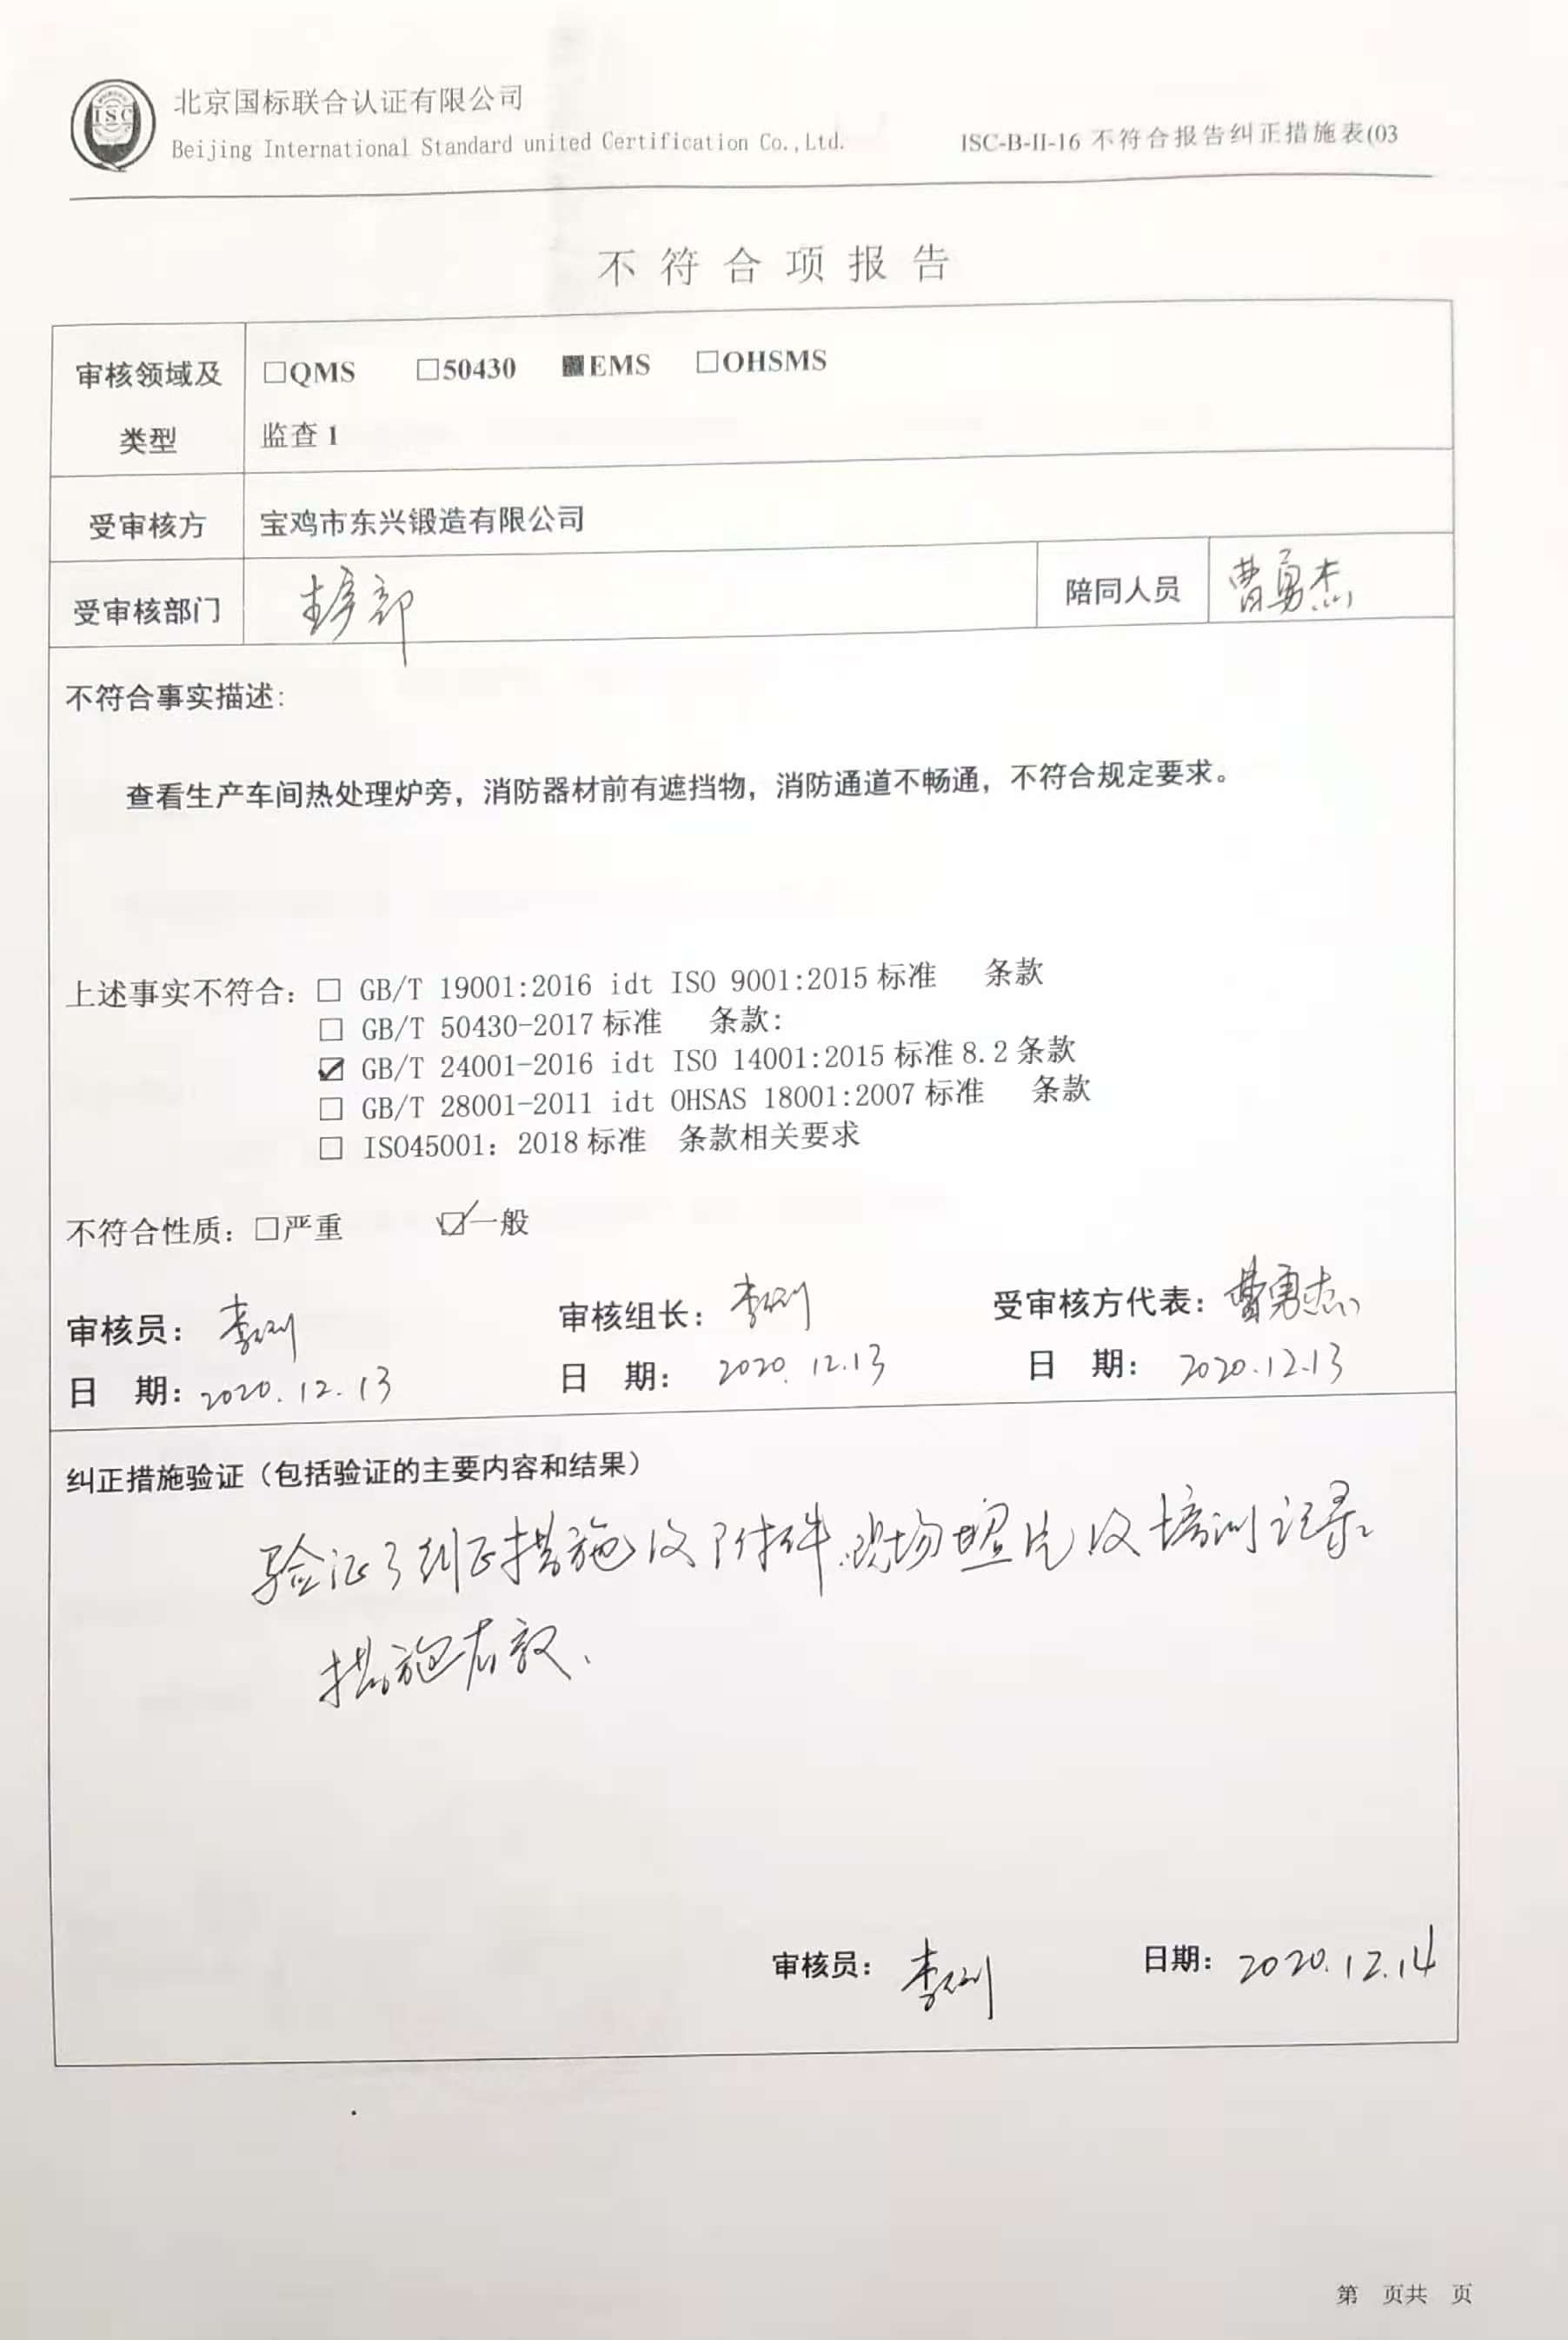 ISC
北京国标联合认证有限公司
Beijing International Standard united Certification Co.,Ltd.
ISC-B-II-16 不符合报告纠正措施表(03
不符合项报告
审核领域及类型
□QMS □50430 ■EMS □OHSMS
监查 1
受审核方 宝鸡市东兴锻造有限公司
受审核部门 生产部 陪同人员 曹勇杰
不符合事实描述:
查看生产车间热处理炉旁，消防器材前有遮挡物，消防通道不畅通，不符合规定要求。
上述事实不符合：□ GB/T 19001:2016 idt ISO 9001:2015 标准 条款
□ GB/T 50430-2017 标准 条款:
☑ GB/T 24001-2016 idt ISO 14001:2015 标准 8.2 条款
□ GB/T 28001-2011 idt OHSAS 18001:2007 标准 条款
□ ISO45001：2018 标准 条款相关要求
不符合性质：□严重 ☑一般
审核员： 李 审核组长： 李 受审核方代表：曹勇杰
日 期：2020.12.13 日 期： 2020.12.13 日 期： 2020.12.13
纠正措施验证（包括验证的主要内容和结果）
验证了纠正措施及附件.现场照片及培训记录
措施有效、
审核员： 李 日期：2020.12.14
第 页共 页